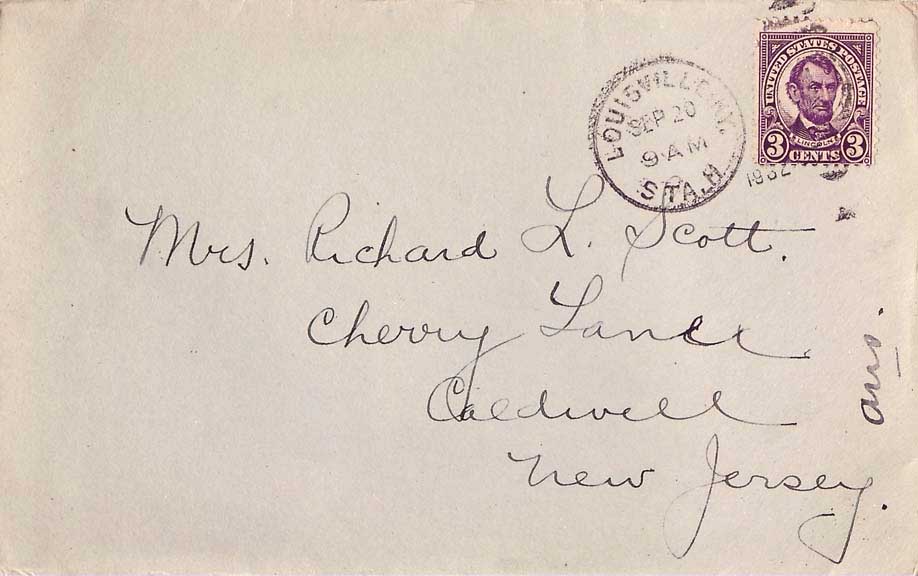 LOUISVILLE, KY.
SEP 20
9 AM
STA. H
1932
UNITED STATES POSTAGE
LINCOLN
3 CENTS 3
Mrs. Richard L. Scott.
Cherry Lane
Caldwell
New Jersey.
ans.